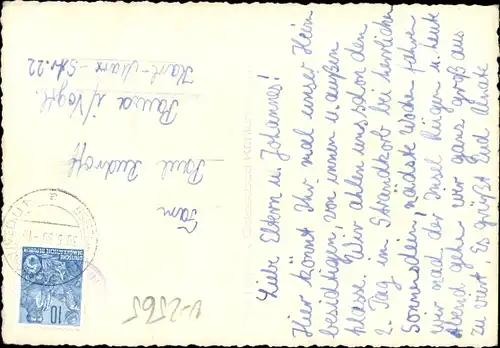 Liebe Eltern u. Johannes!
Hier könnt Ihr mal unser Heim
besichtigen, von innen u. außen
klasse. Wir aalen uns schon den
2. Tag im Strandkorb bei herrlichen
Sonnenschein, nächste Woche fahren
wir nach der Insel Rügen u. heute
Abend gehn wir ganz groß aus
zu viert! Es grüßt Euch
Fam
Paul
Pausa i/Vogtl.
Karl-Marx-Str. 22
Ostseebad
DEUTSCHE
DEMOKRATISCHE REPUBLIK
10